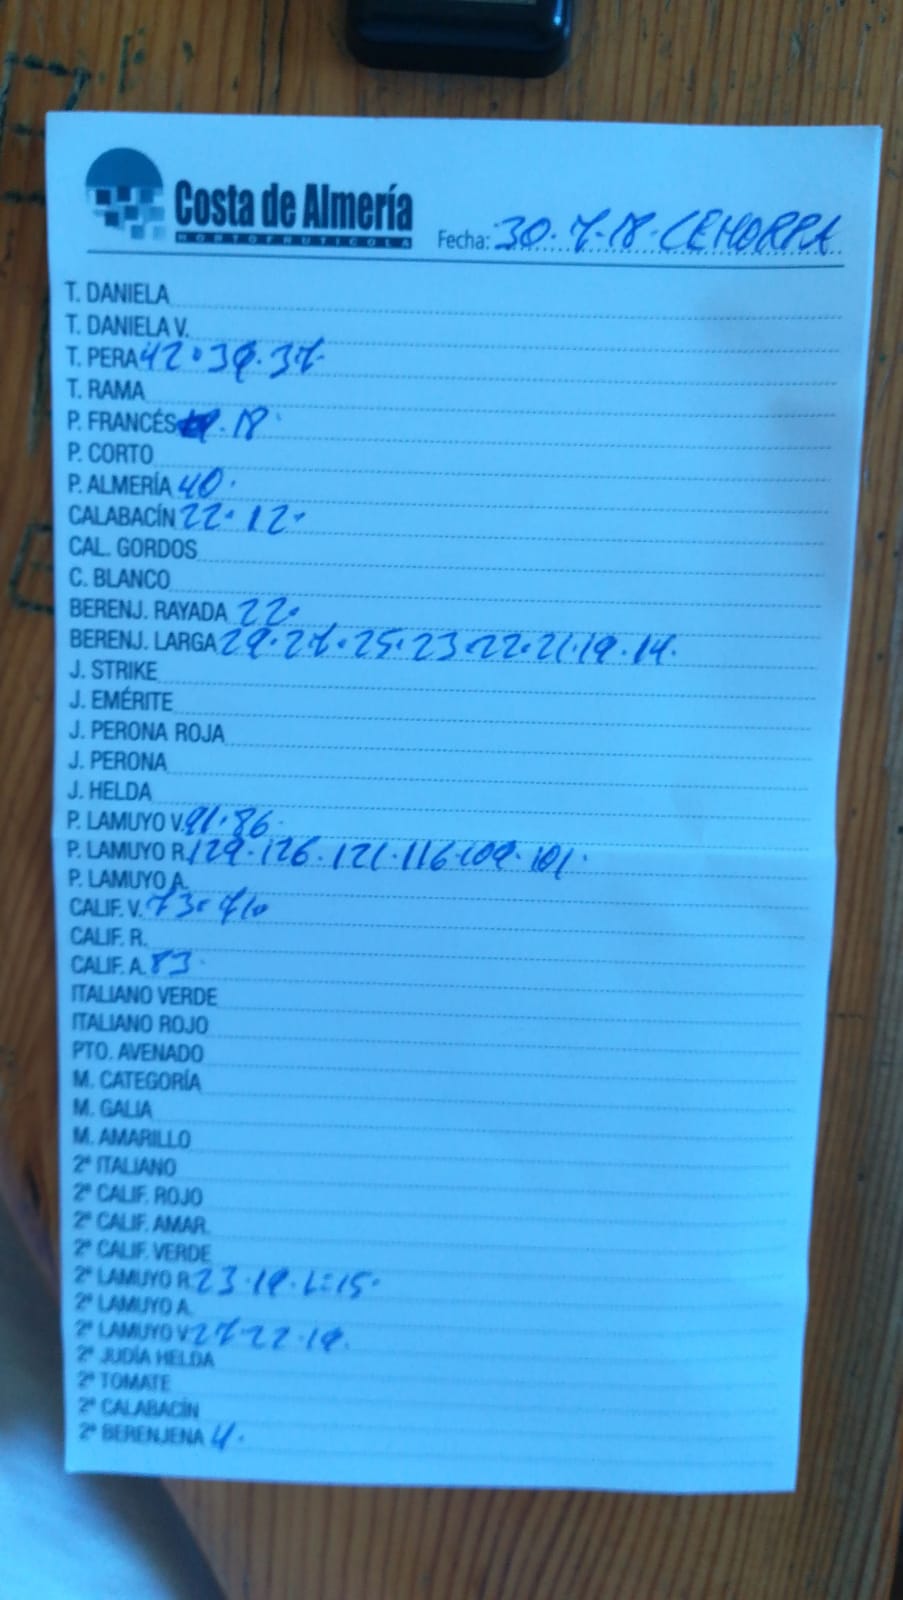 Costa de Almería
HORTOFRUTICOLA
Fecha: 30.7.18. CEHORPA
T. DANIELA
T. DANIELA V.
T. PERA 42. 39. 37.
T. RAMA
P. FRANCÉS . 18
P. CORTO
P. ALMERÍA 40.
CALABACÍN 22. 12.
CAL. GORDOS
C. BLANCO
BERENJ. RAYADA 22.
BERENJ. LARGA 29. 27. 25. 23. 22. 21. 19. 14.
J. STRIKE
J. EMÉRITE
J. PERONA ROJA
J. PERONA
J. HELDA
P. LAMUYO V. 91. 86.
P. LAMUYO R. 129. 126. 121. 116. 109. 101.
P. LAMUYO A.
CALIF. V. 73. 70
CALIF. R.
CALIF. A. 83.
ITALIANO VERDE
ITALIANO ROJO
PTO. AVENADO
M. CATEGORÍA
M. GALIA
M. AMARILLO
2ª ITALIANO
2ª CALIF. ROJO
2ª CALIF. AMAR.
2ª CALIF. VERDE
2ª LAMUYO R. 23. 19. L=15.
2ª LAMUYO A.
2ª LAMUYO V. 27 22. 19.
2ª JUDÍA HELDA
2ª TOMATE
2ª CALABACÍN
2ª BERENJENA 4.